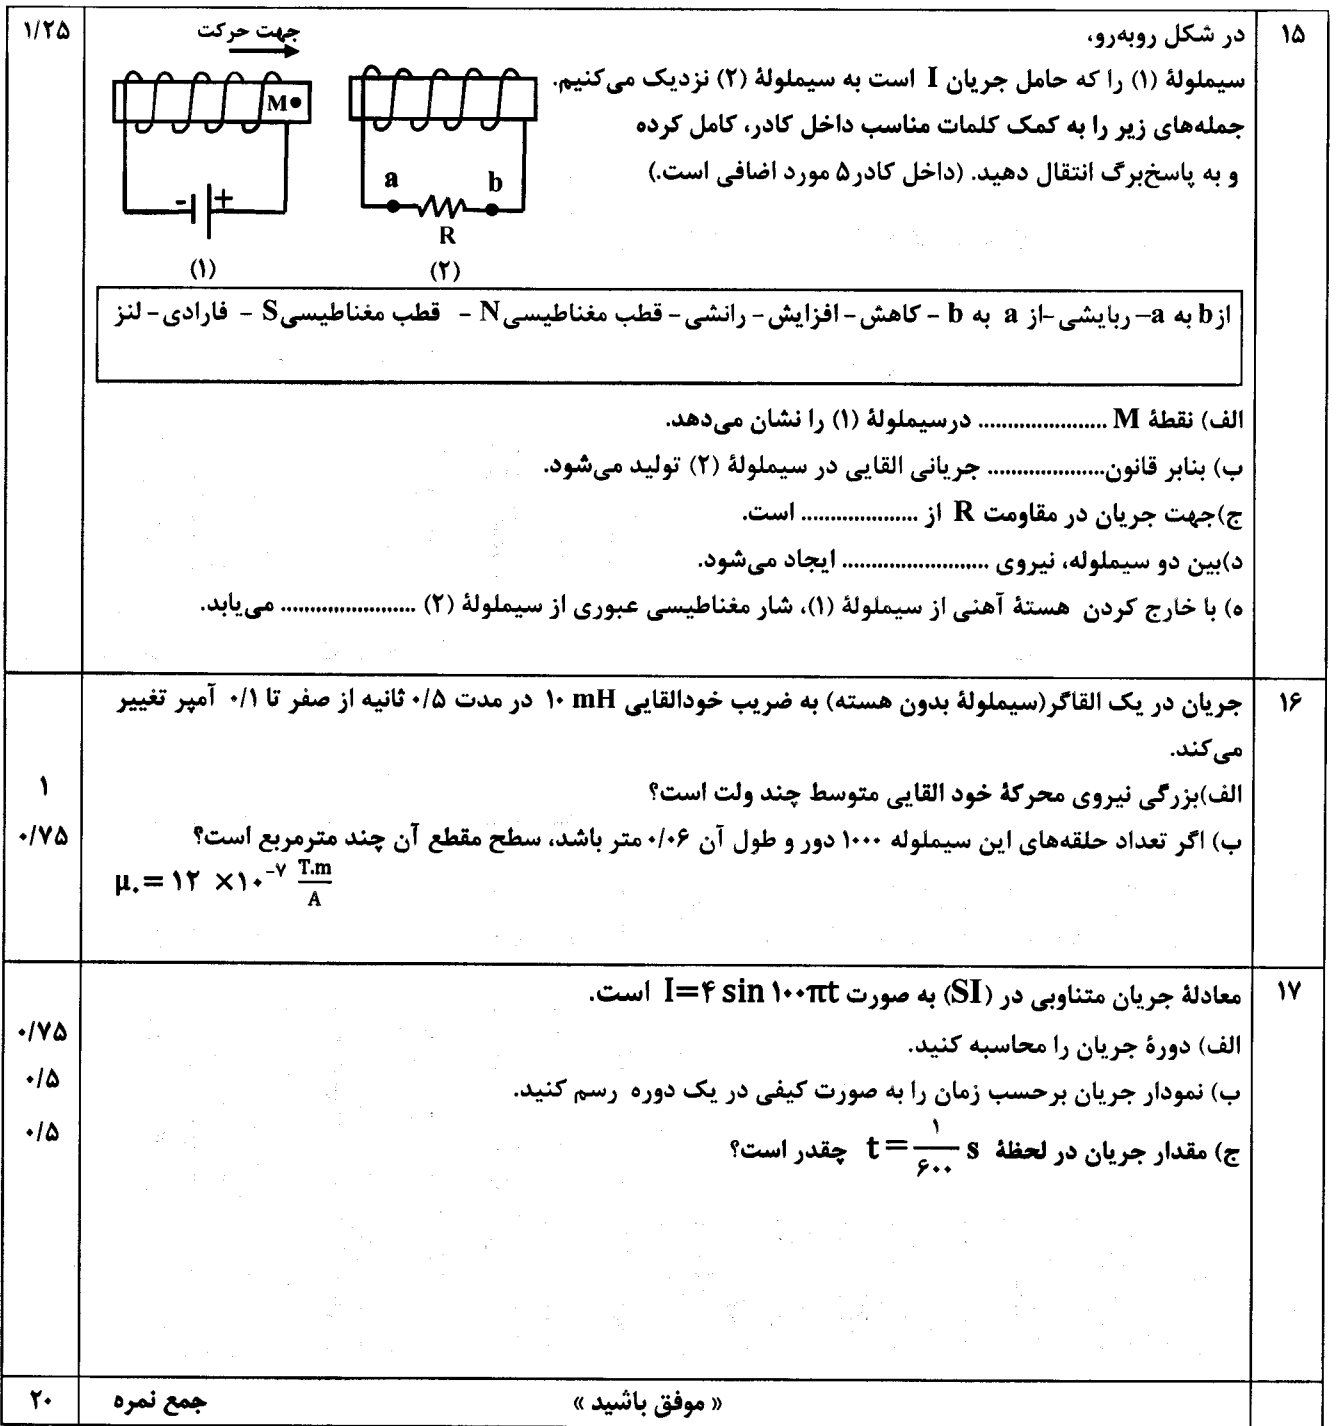 ۱۵
۱/۲۵
در شکل روبه‌رو،
سیملولهٔ (۱) را که حامل جریان I است به سیملولهٔ (۲) نزدیک می‌کنیم.
جمله‌های زیر را به کمک کلمات مناسب داخل کادر، کامل کرده
و به پاسخ‌برگ انتقال دهید. (داخل کادر۵ مورد اضافی است.)
جهت حرکت
M
- +
(۱)
a b
R
(۲)
از b به a – ربایشی - از a به b - کاهش - افزایش - رانشی - قطب مغناطیسی N - قطب مغناطیسی S - فارادی - لنز
الف) نقطهٔ M ...................... درسیملولهٔ (۱) را نشان می‌دهد.
ب) بنابر قانون.................... جریانی القایی در سیملولهٔ (۲) تولید می‌شود.
ج)جهت جریان در مقاومت R از .................... است.
د)بین دو سیملوله، نیروی ......................... ایجاد می‌شود.
ه) با خارج کردن هستهٔ آهنی از سیملولهٔ (۱)، شار مغناطیسی عبوری از سیملولهٔ (۲) ....................... می‌یابد.
۱۶
جریان در یک القاگر(سیملولهٔ بدون هسته) به ضریب خودالقایی ۱۰ mH در مدت ۰/۵ ثانیه از صفر تا ۰/۱ آمپر تغییر
می‌کند.
الف)بزرگی نیروی محرکهٔ خود القایی متوسط چند ولت است؟
۱
ب) اگر تعداد حلقه‌های این سیملوله ۱۰۰۰ دور و طول آن ۰/۰۶ متر باشد، سطح مقطع آن چند مترمربع است؟
۰/۷۵
μ۰ = ۱۲ ×۱۰⁻⁷ T.m/A
۱۷
معادلهٔ جریان متناوبی در (SI) به صورت I=۴ sin ۱۰۰πt است.
الف) دورهٔ جریان را محاسبه کنید.
۰/۷۵
ب) نمودار جریان برحسب زمان را به صورت کیفی در یک دوره رسم کنید.
۰/۵
ج) مقدار جریان در لحظهٔ t = ۱/۶۰۰ s چقدر است؟
۰/۵
« موفق باشید »
جمع نمره
۲۰